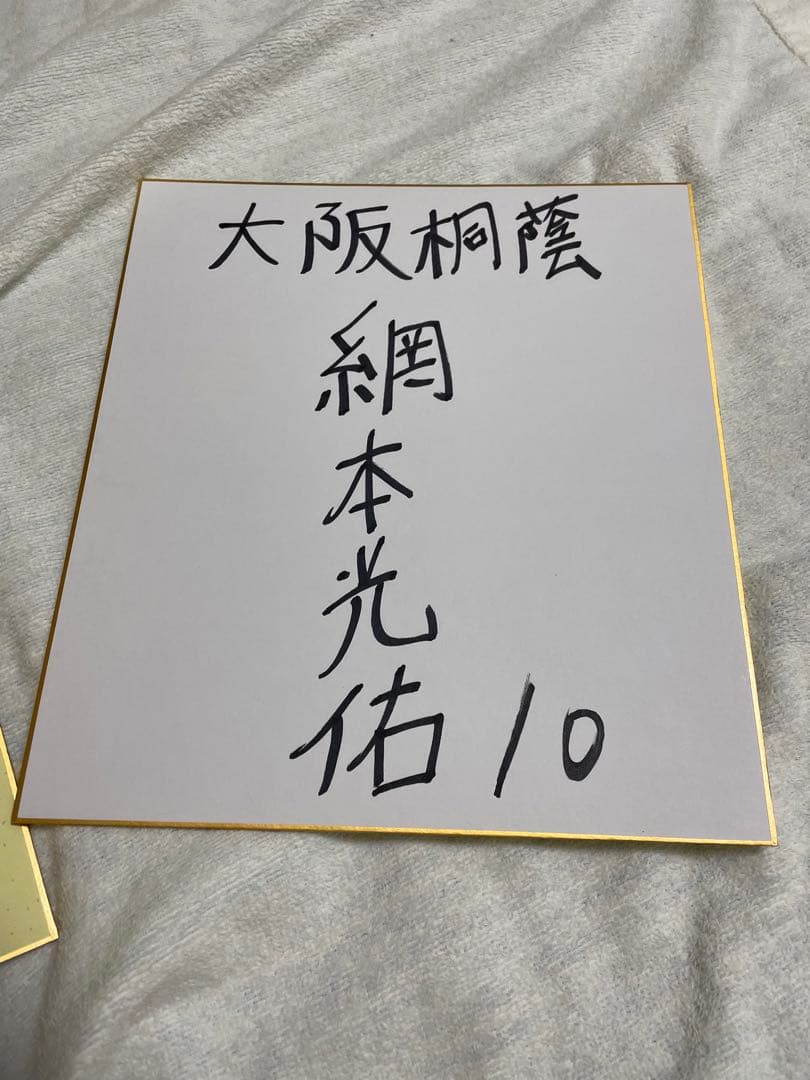 大阪桐蔭
網本光佑
10